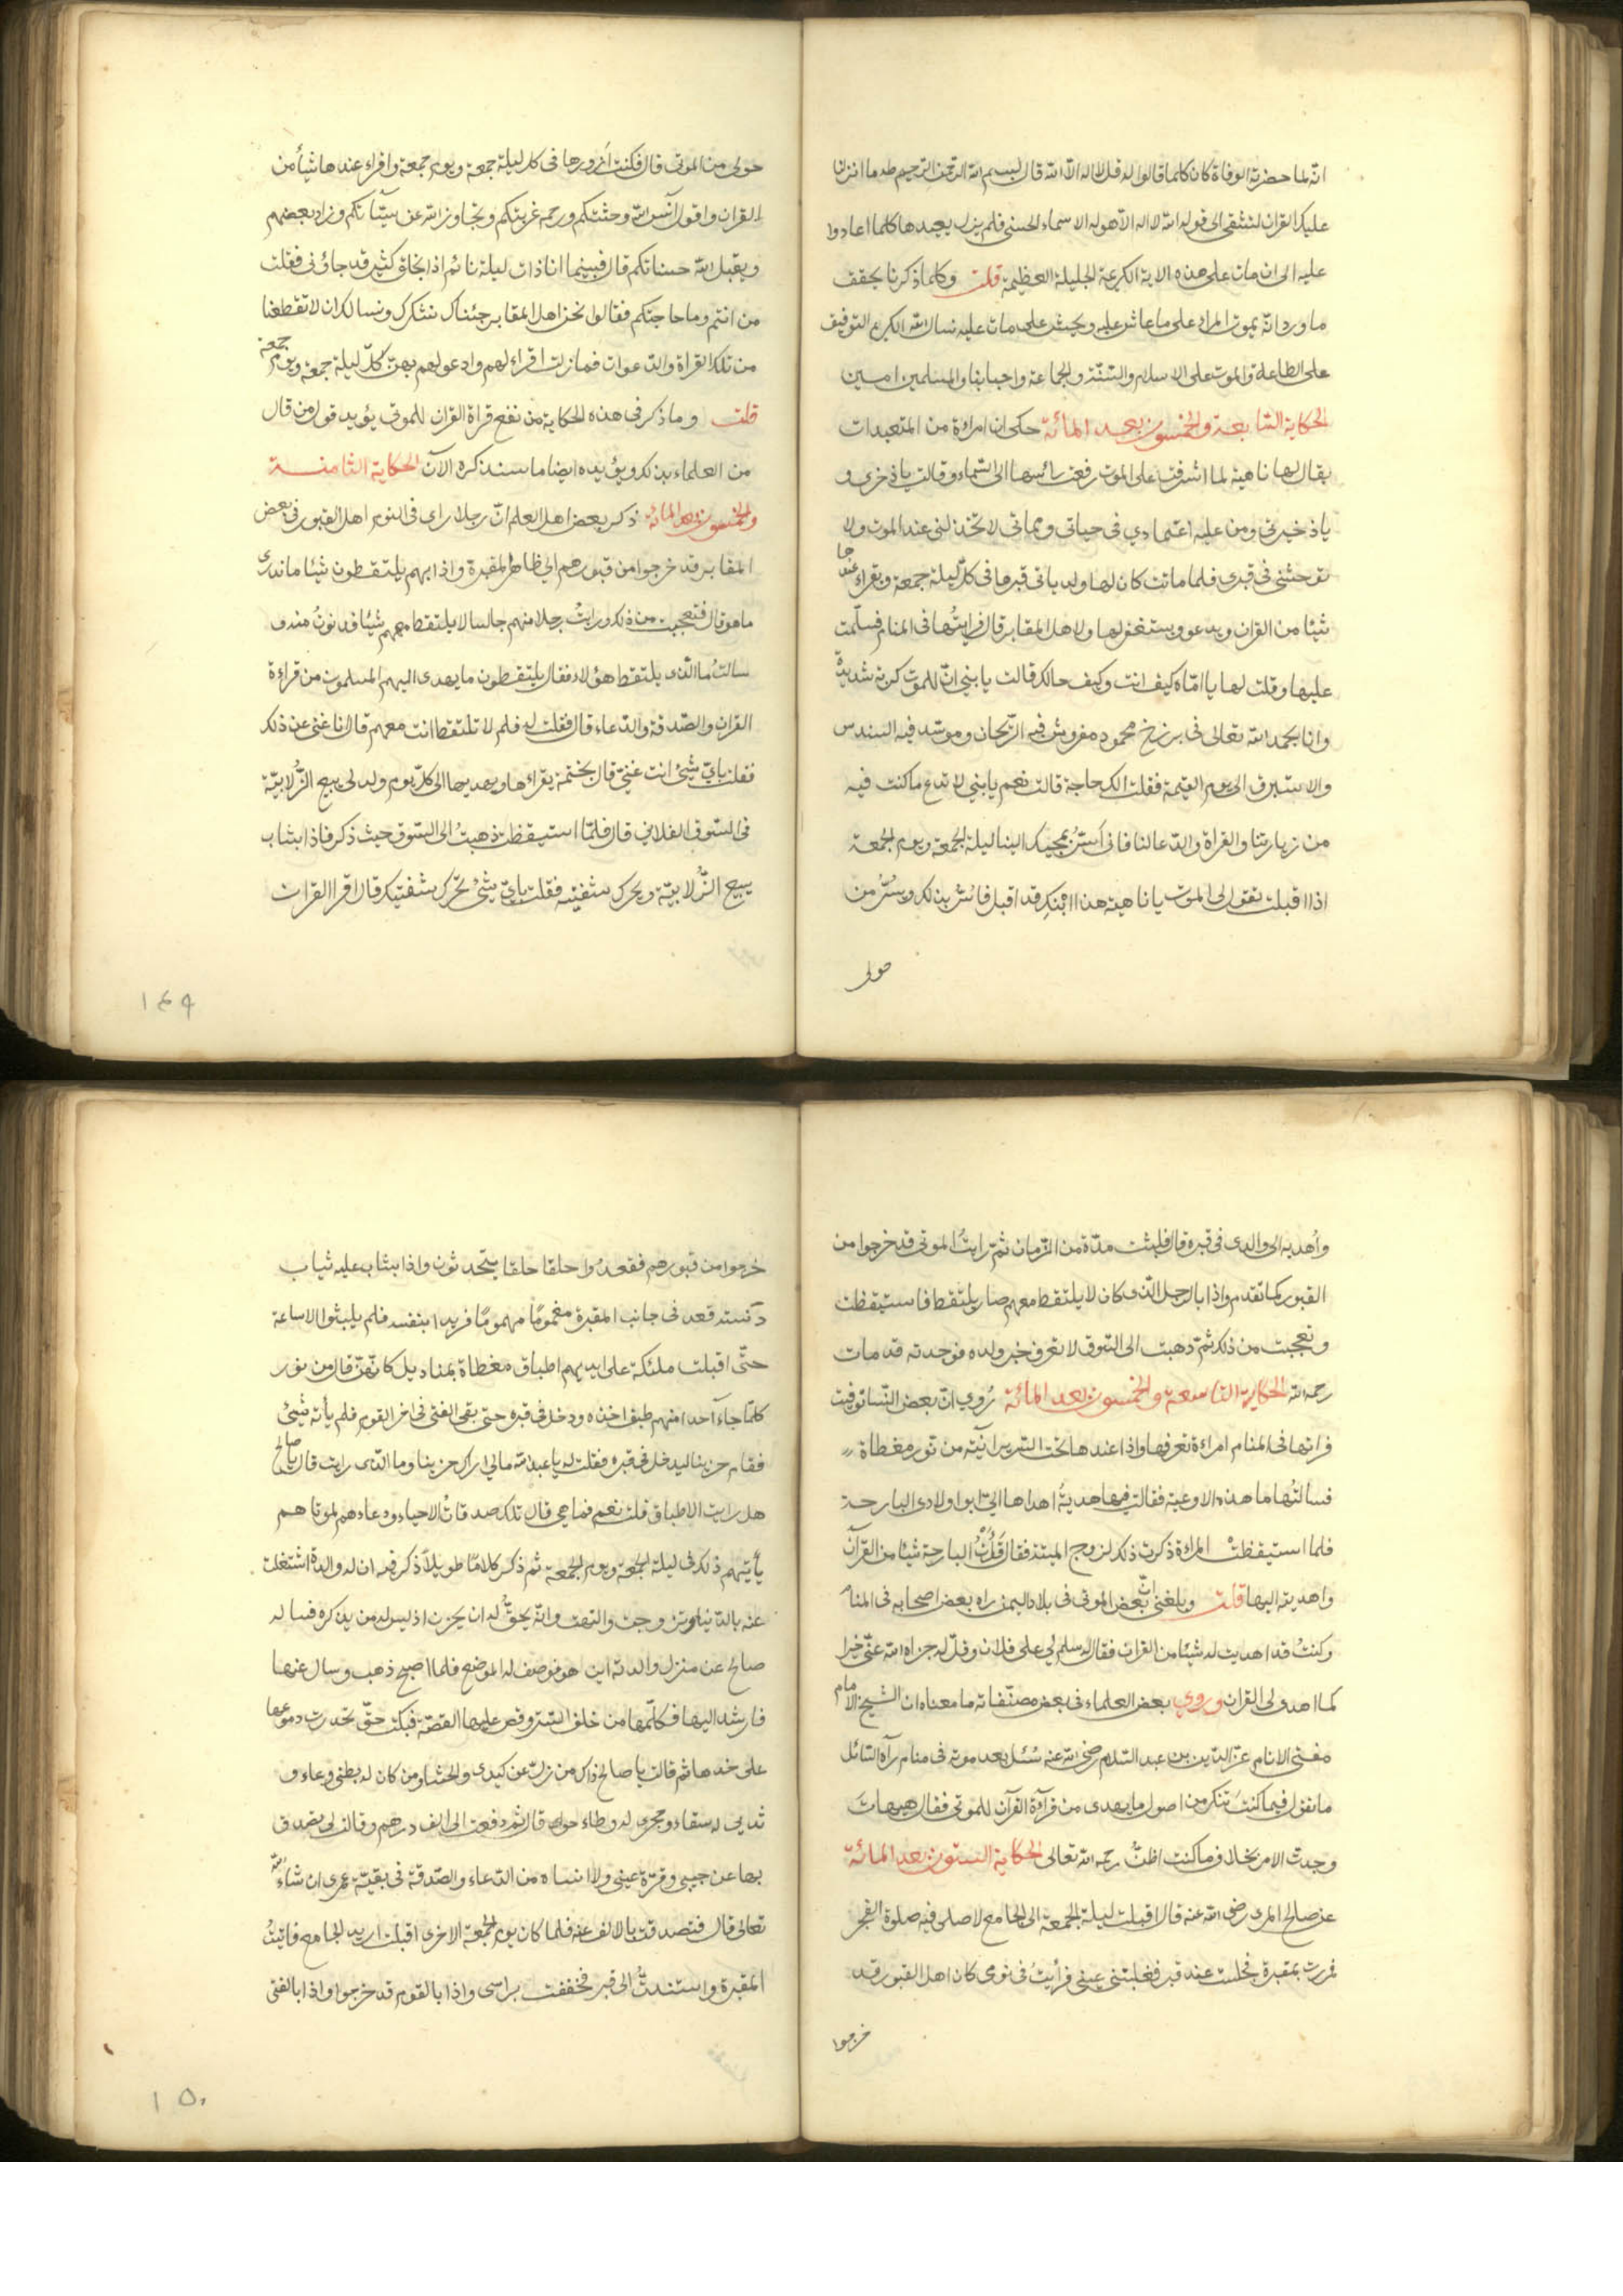 انه لما حضرته الوفاة كان كلما قالوا له قل لا اله الا الله قال بسم الله الرحمن الرحيم طه ما انزلنا
عليك القران لتشقى الى قوله الله لا اله الا هو له الاسماء الحسنى فلم يزل يعيدها كلما اعادوا
عليه الى ان مات على هذه الاية الكريمة الجليلة العظيمة قلت وكلما ذكرنا يحقق
ما ورد انه يموت المرء على ما عاش عليه ويحشر على ما مات عليه نسال الله الكريم التوفيق
على الطاعة والموت على الاسلام والسنة والجماعة واحبابنا والمسلمين امين
الحكاية السابعة والخمسون بعد المائة حكى ان امراءة من المتعبدات
يقال لها ناهية لما اشرفت على الموت رفعت رأسها الى السماء وقالت يا ذخري و
يا ذخيرتي ومن عليه اعتمادي في حياتي ومماتي لا تخذلني عند الموت ولا
توحشني في قبري فلما ماتت كان لها ولد ياتي قبرها في كل ليلة جمعة ويقراء عندها
شيئا من القران ويدعو ويستغفر لها ولاهل المقابر قال فرايتُها في المنام فسلّمت
عليها وقلت لها يا امّاه كيف انت وكيف حالك قالت يا بني انّ للموت كربة شديدة
وانا بحمد الله تعالى في برزخ محمود مفروش فيه الرّيحان وموسّد فيه السندس
والاستبرق الى يوم القيمة فقلت الك حاجة قالت نعم يا بني لا تدع ما كنت فيه
من زيارتنا والقراة والدّعا لنا فاني اُسَرّ بمجيك الينا ليلة الجمعة ويوم الجمعة
اذا اقبلت تقول لي الموت يا ناهية هذا ابنكِ قد اقبل فاُسَرّ بذلك ويُسَرّ من
حولى
حولى من الموتى قال فكنت اَزورها في كل ليلة جمعة ويوم جمعة واقراء عندها شيأ من
القران واقول آنس الله وحشتكم ورحم غربتكم وتجاوز الله عن سيّئآتكم وزاد بعضهم
ويقبل الله حسناتكم قال فبينما انا ذات ليلة نائم اذا بخلق كثير قد جاؤني فقلت
من انتم وما حاجتكم فقالوا نحن اهل المقابر جئناك نشكرك ونسالك ان لا تقطعنا
من تلك القراة والدّعوات فما زلت اقراء لهم وادعو لهم بهنّ كلّ ليلة جمعة ويوم جمعة
قلت وما ذكر في هذه الحكاية من نفع قراة القران للموتى يؤيد قول من قال
من العلماء بذلك ويؤيده ايضا ما سنذكره الآن الحكاية الثامنة
والخمسون بعد المائة ذكر بعض اهل العلم انّ رجلا راى في النوم اهل القبور في بعض
المقابر قد خرجوا من قبورهم الى ظاهر المقبرة واذا بهم يلتقطون شيئا ما ندرى
ما هو قال فتعجبت من ذلك ورايتُ رجلا منهم جالسا لا يلتقط معهم شيئا فدنوتُ منه و
سالتُ ما الذى يلتقط هؤلاء فقال يلتقطون ما يهدى اليهم المسلمون من قراءة
القران والصّدقة والدّعاء قال فقلت له فلم لا تلتقط انت معهم قال انا غنى عن ذلك
فقلت بايّ شئ انت غنيّ قال بختمة يقراءها ويهديها الى كلّ يوم ولد لي يبيع الزّلابيّة
فى السّوق الفلاني قال فلمّا استيقظت ذهبتُ الى السّوق حيث ذكر فاذا بشاب
يبيع الزّلابيّة ويحرك شفتيه فقلت بايّ شئ تحرّك شفتيك قال اقرا القران
١٤٩
واُهديه الى والدى في قبره قال فلبثت مدّة من الزّمان ثمّ رايتُ الموتى قد خرجوا من
القبور كما تقدم واذا بالرجل الذى كان لا يلتقط معهم صار يلتقط فاستيقظت
وتعجبت من ذلك ثمّ ذهبت الى السّوق لاتعرف خبر ولده فوجدته قد مات
رحمه الله الحكاية التاسعة والخمسون بعد المائة رُوي انّ بعض النّسا توفيت
فراتها في المنام امراءة تعرفها واذا عندها تحت السّرير انية من نور مغطاة
فسالتُها ما هذه الاوعية فقالت فيها هديةُ اهداها اليّ ابو اولادى البارحة
فلما استيقظتْ المراءة ذكرت ذلك لزوج الميتة فقال قَرَأْتُ البارحة شيئا من القرآن
واهديته اليها قلت وبلغني انّ بعض الموتى في بلاد اليمن راه بعض اصحابه في المنام
وكنتُ قد اهديت له شيئا من القران فقال له سلم لي على فلان وقل له جزاه الله عنّي خيرا
كما اهدى لى القران وروي بعض العلماء في بعض مصنّفاته ما معناه ان الشيخ الامام
مفتى الانام عزّ الدّين بن عبد السّلام رضى الله عنه سُئل بعد موته في منام رآه السّائل
ما تقول فيما كنتَ تنكر من اصول ما يهدى من قرآءة القرآن للموتى فقال هيهات
وجدت الامر بخلاف ما كنت اظنّ رحمه الله تعالى الحكاية الستون بعد المائة
عن صالح المرى رضى الله عنه قال اقبلت ليلة الجمعة الى الجامع لاصلى فيه صلوة الفجر
فمررت بمقبرة فجلست عند قبر فغلبتنى عينى فرأيتُ في نومى كان اهل القبور قد
خرجوا
خرجوا من قبورهم فقعدُوا حلقا حلقا يتّحدثون واذا بشاب عليه ثياب
دنسة قعد في جانب المقبرة مغمومًا مهمومًا فريدا بنفسه فلم يلبثوا الا ساعة
حتّى اقبلت ملئكة على ايديهم اطباق مغطاة بمناديل كانّهنّ قال من نور
كلّما جاء احدا منهم طبق اخذه ودخل في قبره حتى بقى الفتى في اخر القوم فلم يأته شيئ
فقام حزينا ليدخل في قبره فقلت له يا عبد الله مالى اراك حزينا وما الذى رايت قال يا صالح
هل رايت الاطباق قلت نعم فما هى قال تلك صدقاتُ الاحياء ودعاءهم لموتاهم
يأتيهم ذلك في ليلة الجمعة ويوم الجمعة ثم ذكر كلامًا طويلاً ذكر فيه ان له والدة اشتغلت
عنه بالدّنيا وتزوجت والتهت وانّه يحقّ له ان يحزن اذ ليس له من يذكره فساله
صالح عن منزل والدته اين هو فوصف له الموضع فلما اصبح ذهب وسال عنها
فارشد اليها فكلّمها من خلف السّتر وقص عليها القصّة فبكت حتى تحدرت دموعها
على خدها ثم قالت يا صالح ذاك من نزل عن كبدى والحشا ومن كان له بطنى وعاء و
ثديى له سقاء وحجرى له وطاء حواء قال ثمّ دفعت الى الف درهم وقالت لى تصدق
بها عن حبيبى وقرّة عينى ولا انساه من الدّعاء والصّدقة في بقيّة عمرى ان شاء الله
تعالى قال فتصدقت بالالف عنه فلما كان يوم الجمعة الاخرى اقبلت اريد الجامع فاتيتُ
المقبرة واستندتُّ الى قبر فخففت براسى واذا بالقوم قد خرجوا واذا بالفتى
١٥٠